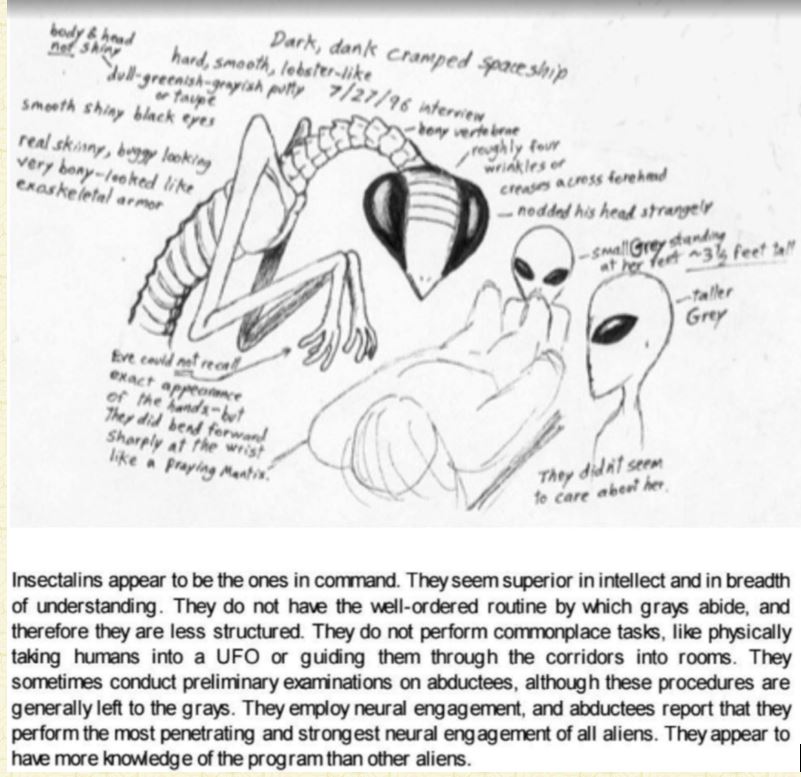 body & head
not shiny
Dark, dank cramped spaceship
hard, smooth, lobster-like
dull-greenish-grayish putty
or taupe
7/27/96 interview
smooth shiny black eyes
bony vertebrae
real skinny, buggy looking
very bony-looked like
exoskeletal armor
roughly four
wrinkles or
creases across forehead
nodded his head strangely
small Grey standing
at her feet ~3½ feet tall
taller
Grey
Eve could not recall
exact appearance
of the hands-but
They did bend forward
Sharply at the wrist
like a Praying Mantis.
They didn't seem
to care about her.
Insectalins appear to be the ones in command. They seem superior in intellect and in breadth
of understanding. They do not have the well-ordered routine by which grays abide, and
therefore they are less structured. They do not perform commonplace tasks, like physically
taking humans into a UFO or guiding them through the corridors into rooms. They
sometimes conduct preliminary examinations on abductees, although these procedures are
generally left to the grays. They employ neural engagement, and abductees report that they
perform the most penetrating and strongest neural engagement of all aliens. They appear to
have more knowledge of the program than other aliens.